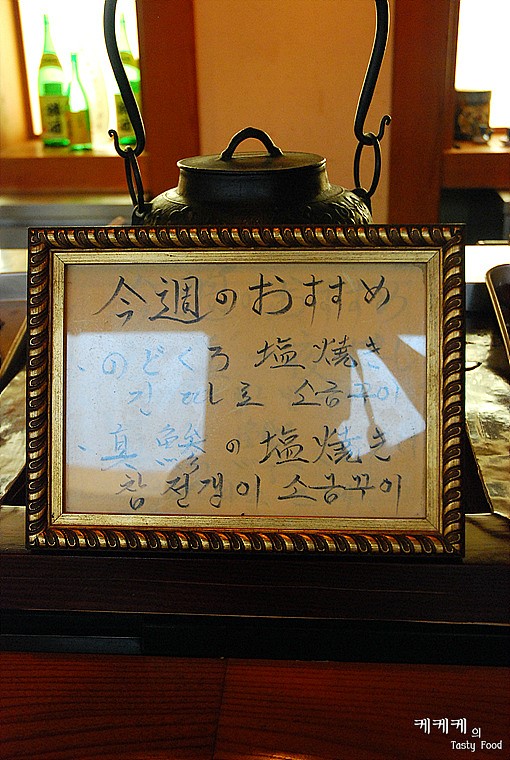 今週のおすすめ
・のどくろ 塩焼き
긴따로 소금꾸이
・真鯵の塩焼き
참 전갱이 소금꾸이
케케케의
Tasty Food